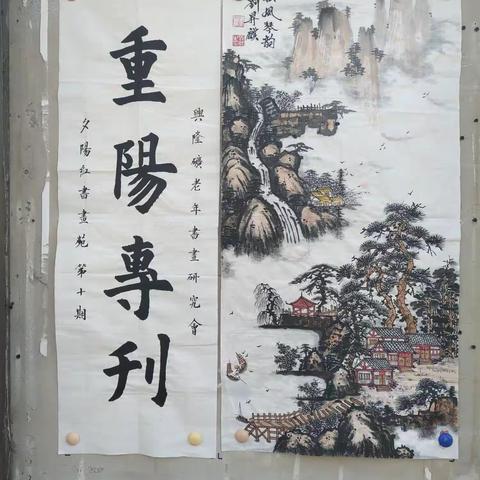 風琴韵
興隆礦老年書畫研究會
重陽專刊
夕陽红書畫苑 第十期